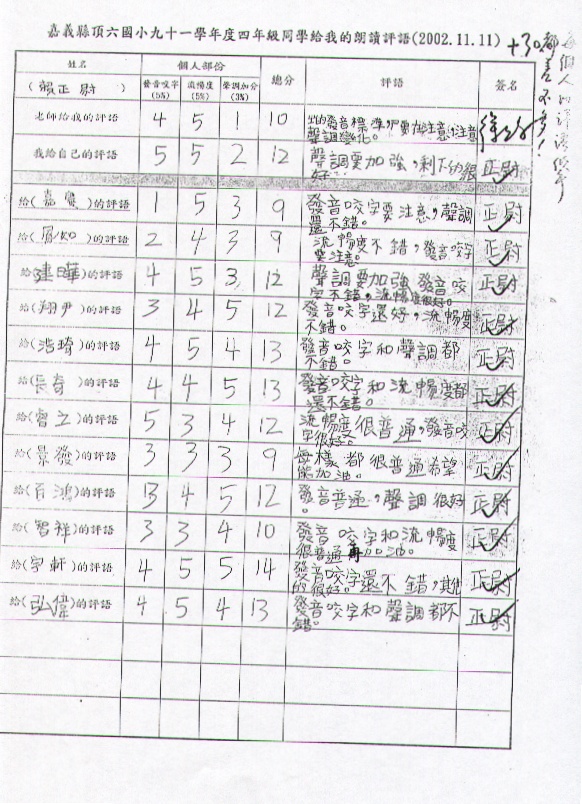 嘉義縣頂六國小九十一學年度四年級同學給我的朗讀評語(2002.11.11) +30
每個人的評語
都差不多！
姓名 個人部份 總分 評語 簽名
(賴正尉) 發音咬字(5%) 流暢度(5%) 聲調加分(3%)
老師給我的評語 4 5 1 10 發音標準,但要多注意
聲調變化。
我給自己的評語 5 5 2 12 聲調要加強,剩下的很 正尉
好。
給(嘉賓)的評語 1 5 3 9 發音咬字要注意,聲調 正尉
還不錯。
給( )的評語 2 4 3 9 流暢度不錯,發音咬字 正尉
要注意。
給(建曄)的評語 4 5 3 12 聲調要加強 發音咬 正尉
字不錯,流暢度很好。
給(翔尹)的評語 3 4 5 12 發音咬字還好,流暢度 正尉
不錯。
給(浩琦)的評語 4 5 4 13 發音咬字和聲調都 正尉
不錯。
給(長奇)的評語 4 4 5 13 發音咬字和流暢度都 正尉
還不錯。
給( 之)的評語 5 3 4 12 流暢度很普通,發音咬 正尉
字很好。
給(景發)的評語 3 3 3 9 每樣都很普通希望 正尉
能加油。
給(百鴻)的評語 3 4 5 12 發音普通,聲調很好 正尉
。
給(智祥)的評語 3 3 4 10 發音咬字和流暢度 正尉
很普通再加油。
給(宇軒)的評語 4 5 5 14 發音咬字還不錯,其他 正尉
的很好。
給(弘偉)的評語 4 5 4 13 發音咬字和聲調都不 正尉
錯。